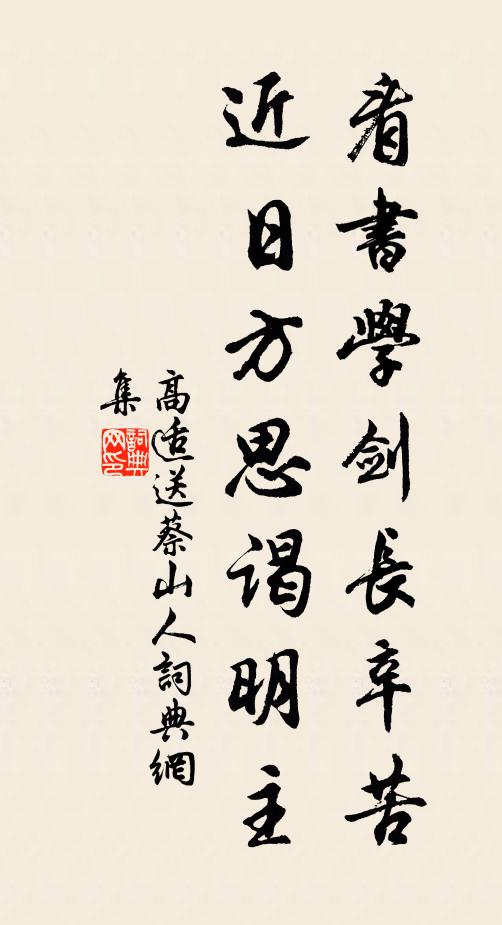 看書學劍長辛苦
近日方思謁明主
高適送蔡山人詞典網
集
詞典
网印